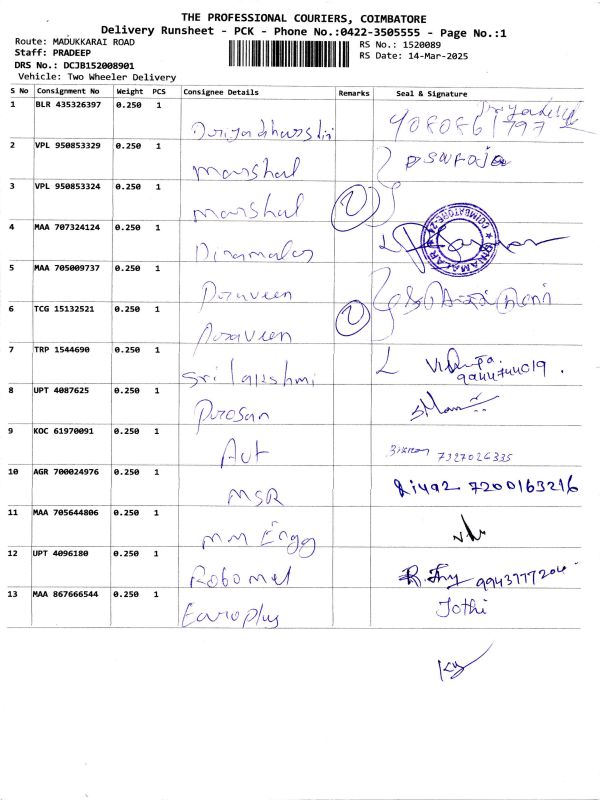 THE PROFESSIONAL COURIERS, COIMBATORE
Delivery Runsheet - PCK - Phone No.:0422-3505555 - Page No.:1
Route: MADUKKARAI ROAD
RS No.: 1520089
Staff: PRADEEP
RS Date: 14-Mar-2025
DRS No.: DCJB152008901
Vehicle: Two Wheeler Delivery
S No Consignment No Weight PCS Consignee Details Remarks Seal & Signature
1 BLR 435326397 0.250 1
2 VPL 950853329 0.250 1 Marshal
3 VPL 950853324 0.250 1 Marshal 2
4 MAA 707324124 0.250 1 Dinamalar
5 MAA 705009737 0.250 1 Praveen
6 TCG 15132521 0.250 1 Praveen 2
7 TRP 1544690 0.250 1 Sri lakshmi 9944744019.
8 UPT 4087625 0.250 1
9 KOC 61970091 0.250 1 7327026335
10 AGR 700024976 0.250 1 MSR Riyaz 7200163216
11 MAA 705644806 0.250 1 MM Engg
12 UPT 4096180 0.250 1 Robomet
13 MAA 867666544 0.250 1 Europlus Jothi